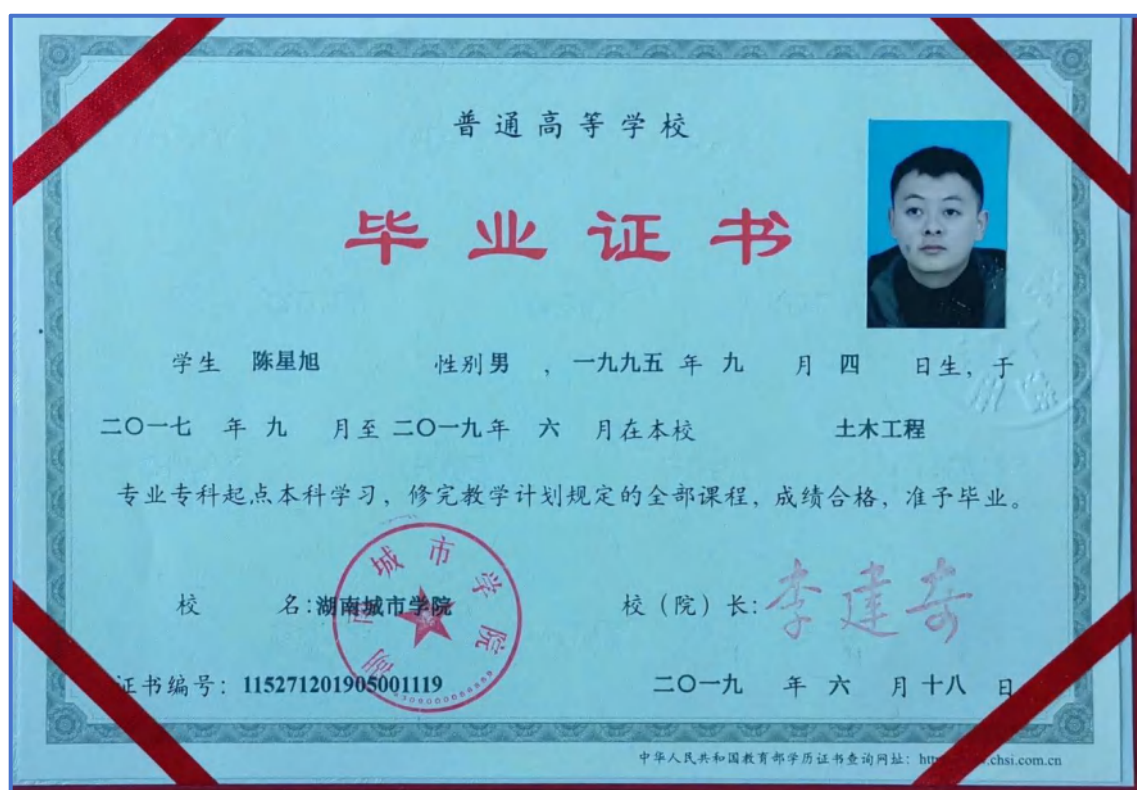 普通高等学校
毕业证书
学生 陈星旭 性别 男 ，一九九五 年 九 月 四 日生，于
二〇一七 年 九 月至 二〇一九 年 六 月在本校 土木工程
专业专科起点本科学习，修完教学计划规定的全部课程，成绩合格，准予毕业。
校 名：湖南城市学院 校（院）长：李建奇
湖南城市学院
证书编号：115271201905001119 二〇一九 年 六 月 十八 日
中华人民共和国教育部学历证书查询网址：chsi.com.cn